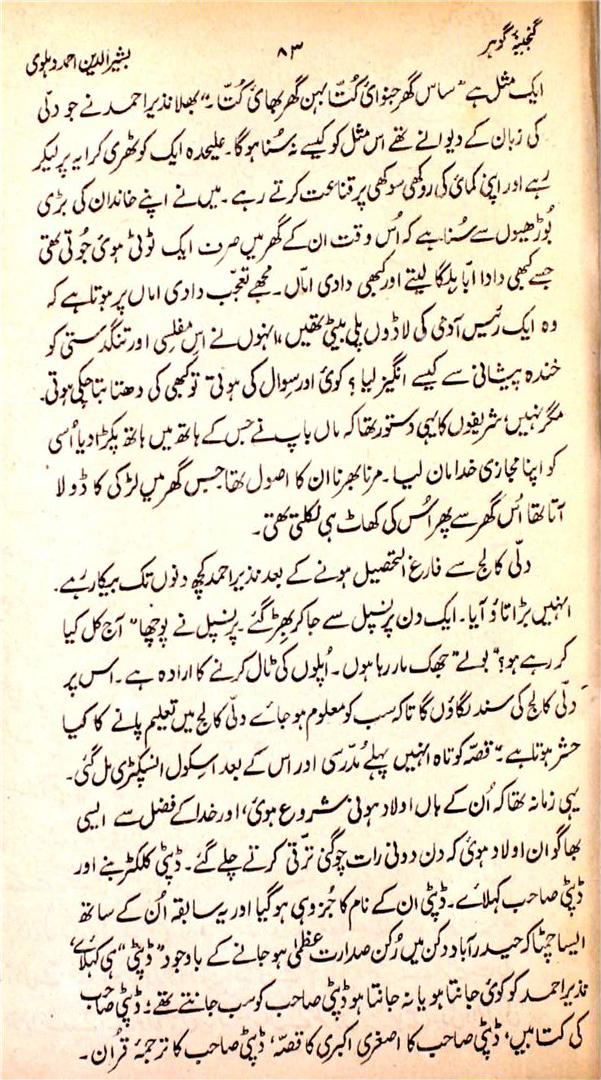 گنجینۂ گوہر
۸۳
بشیرالدین احمد دہلوی
ایک مثل ہے "ساس گھر جنوائی کُتّا بہن گھر بھائی کُتّا۔" بھلا نذیر احمد نے جو دلّی
کی زبان کے دیوانے تھے اس مثل کو کیسے نہ سُنا ہوگا۔ علیحدہ ایک کوٹھری کرایہ پر لیکر
رہے اور اپنی کمائی کی روکھی سوکھی پر قناعت کرتے رہے۔ میں نے اپنے خاندان کی بڑی
بُوڑھیوں سے سُنا ہے کہ اُس وقت ان کے گھر میں صرف ایک ٹوٹی ہوئی جُوتی تھی
جسے کبھی دادا ابّا ہلگا لیتے اور کبھی دادی امّاں۔ مجھے تعجّب دادی اماں پر ہوتا ہے کہ
وہ ایک رئیس آدمی کی لاڈوں پلی بیٹی تھیں، انہوں نے اس مفلسی اور تنگدستی کو
خندہ پیشانی سے کیسے انگیز لیا؟ کوئی اور سوال کی ہوتی تو کبھی کی دھتا بتا چکی ہوتی۔
مگر نہیں، شریفوں کا یہی دستور تھا کہ ماں باپ نے جس کے ہاتھ میں ہاتھ پکڑا دیا اُسی
کو اپنا مجازی خدا مان لیا۔ مرنا بھرنا ان کا اصول تھا جس گھر میں لڑکی کا ڈولا
آتا تھا اُس گھر سے پھر اُس کی کھاٹ ہی نکلتی تھی۔
دلّی کالج سے فارغ التحصیل ہونے کے بعد نذیر احمد کچھ دنوں تک بیکار رہے۔
انہیں بڑا تاؤ آیا۔ ایک دن پرنسپل سے جا کر بھڑ گئے۔ پرنسپل نے پوچھا "آج کل کیا
کر رہے ہو؟" بولے "جھک مار رہا ہوں۔ اُپلوں کی ٹال کرنے کا ارادہ ہے۔ اس پر
دلّی کالج کی سند لگاؤں گا تاکہ سب کو معلوم ہو جائے دلّی کالج میں تعلیم پانے کا کیا
حشر ہوتا ہے۔" قصّہ کوتاہ انہیں پہلے مُدّرسی اور اس کے بعد اسکول انسپکٹری مل گئی۔
یہی زمانہ تھا کہ اُن کے ہاں اولاد ہونی شروع ہوئی، اور خدا کے فضل سے ایسی
بھاگوان اولاد ہوئی کہ دن دونی رات چوگنی ترقی کرتے چلے گئے۔ ڈپٹی کلکٹر بنے اور
ڈپٹی صاحب کہلائے۔ ڈپٹی ان کے نام کا جُز وہی ہو گیا اور یہ سابقہ اُن کے ساتھ
ایسا چمٹا کہ حیدرآباد دکن میں رُکن صدارت عظمیٰ ہو جانے کے باوجود "ڈپٹی" ہی کہلائے،
نذیر احمد کو کوئی جانتا ہو یا نہ جانتا ہو ڈپٹی صاحب کو سب جانتے تھے؛ ڈپٹی صاحب
کی کتابیں، ڈپٹی صاحب کا اصغری اکبری کا قصّہ، ڈپٹی صاحب کا ترجمۂ قرآن۔